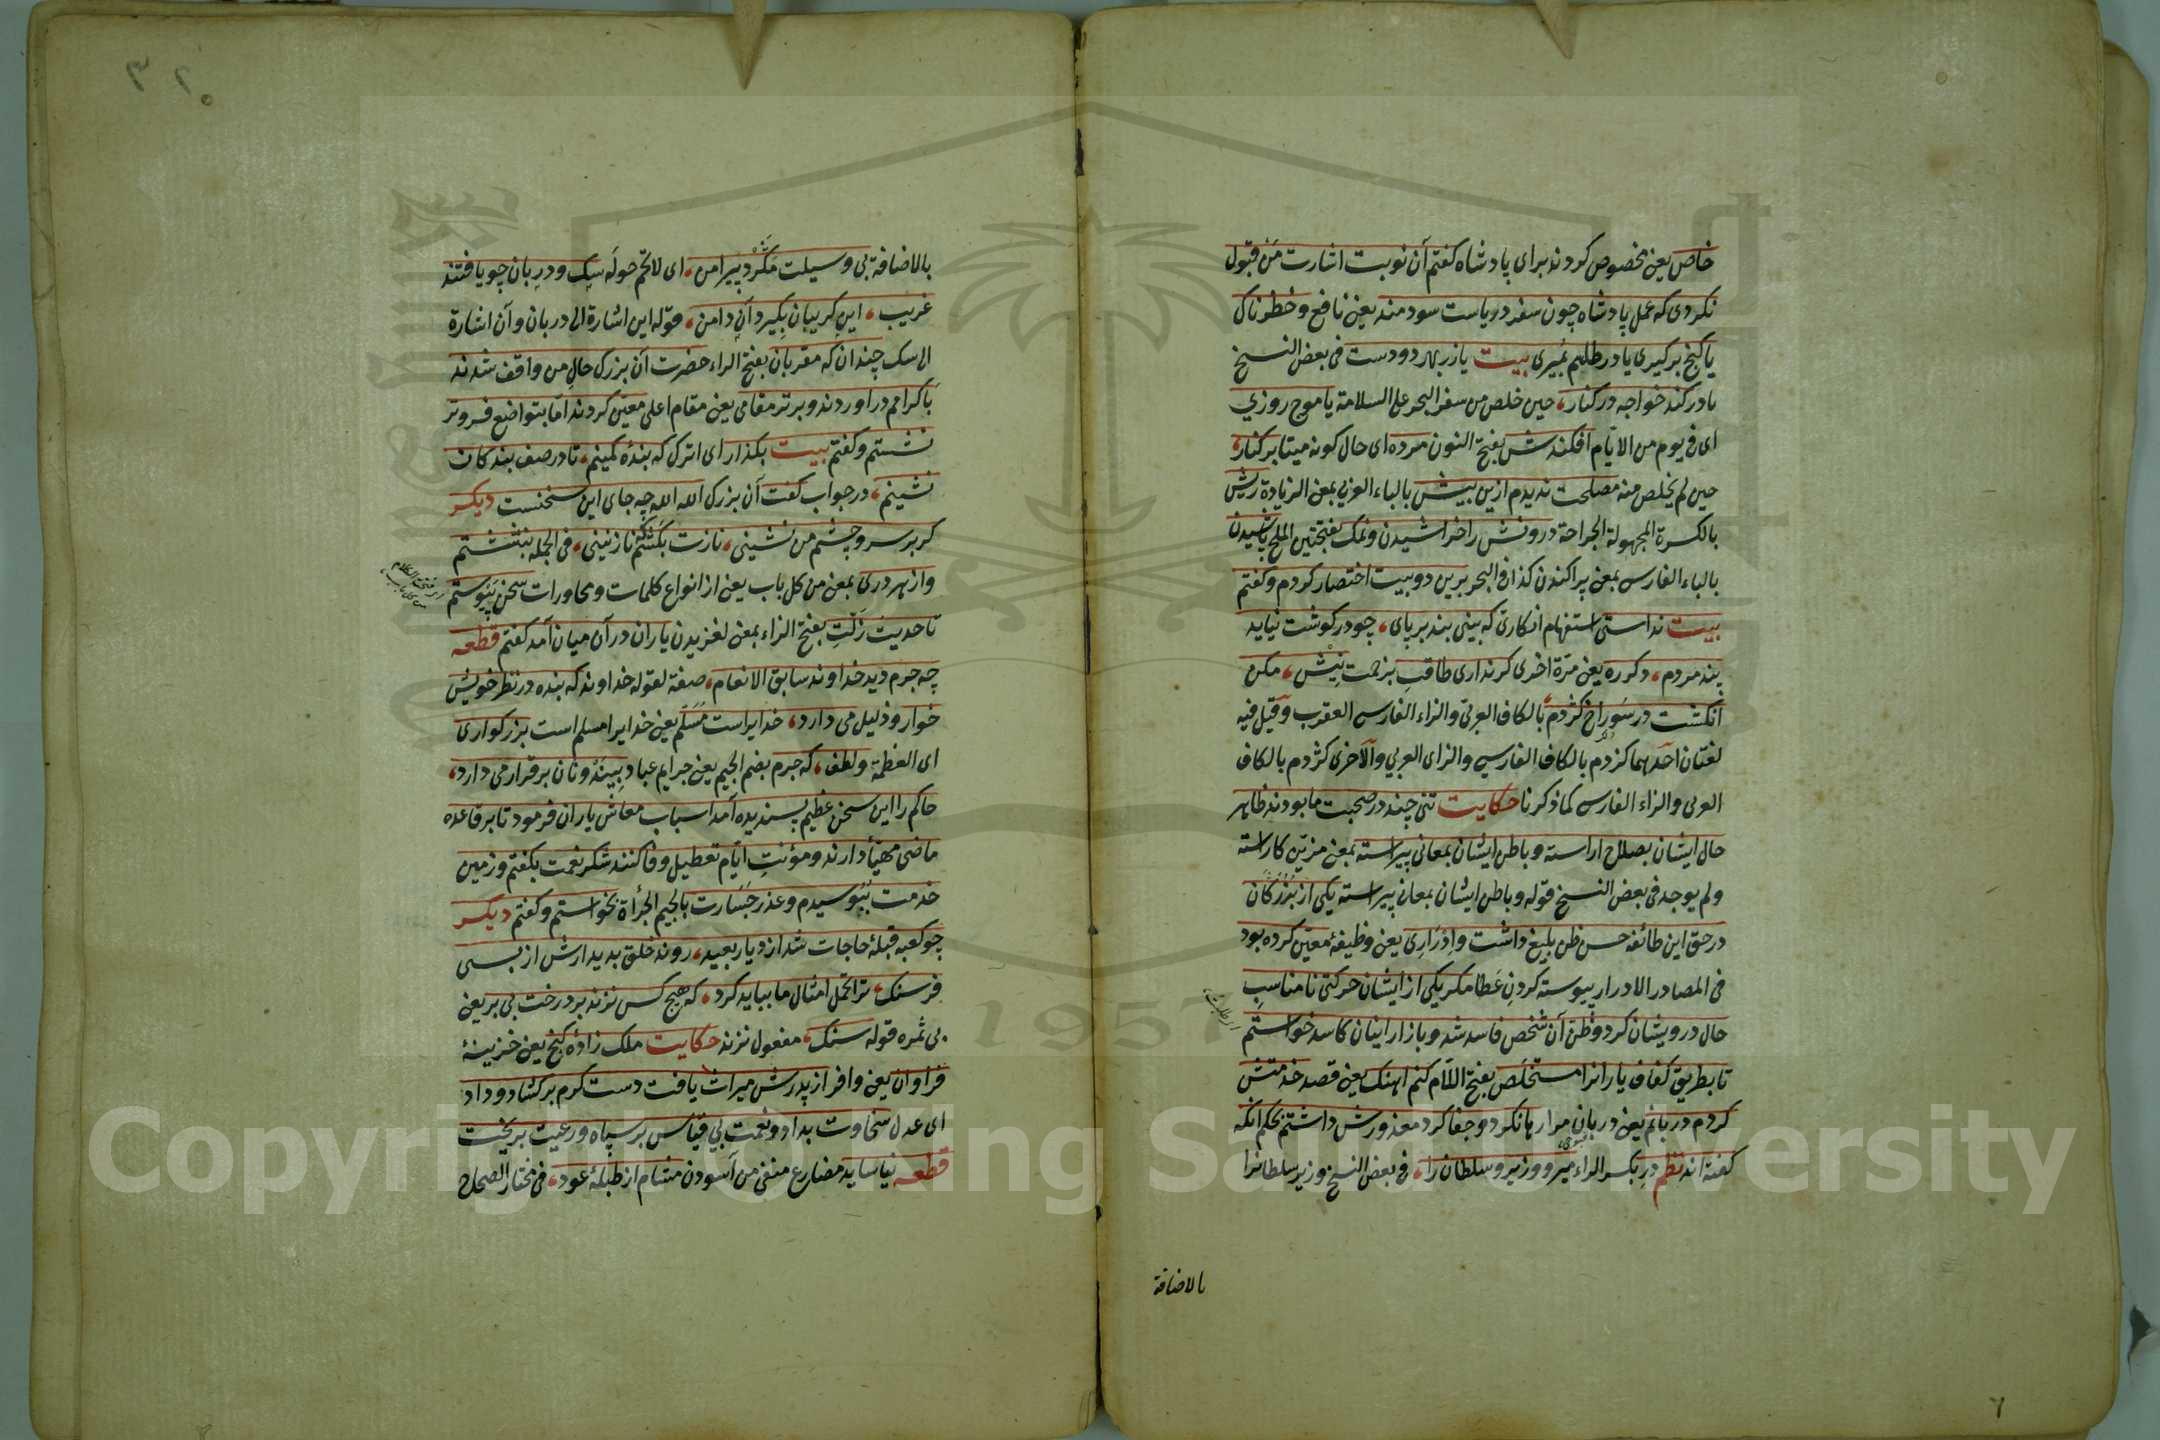 خاص یعنی مخصوص کردند برای پادشاه کفتم آن نوبت اشارت من قبول
نکردی که عمل پادشاه چون سفر دریاست سودمند یعنی نافع و خطرناک
یا کنج برکیری یا در طلسم بمیری بیت یا زر بهر دو دست فی بعض النسخ
یا در کند خواجه در کنار، حین خلص من سفر البحر علی السلامة یا موج روزی
ای فی یوم من الایام افکندش بفتح النون مرده ای حال کونه میتا بر کنار،
حین لم یخلص منه مصلحت ندیدم ازین بیش بالباء العربی بمعنی الزیادة ریش
بالکسرة المجهولة الجراحة درونش را خراشیدن ونمک بفتحتین الملح پاشیدن
بالباء الفارسی بمعنی پراکندن کذا فی البحر برین دو بیت اختصار کردم وکفتم
بیت نداستی استفهام انکاری که بینی بند بر پای، چو در کوشت نیاید
پند مردم، دکر ره یعنی مرة اخری کر نداری طاقت زخمت نیش، مکن
انکشت در سوراخ کژدم بالکاف العربی والزاء الفارسی العقرب وقیل فیه
لغتان احدیهما کزدم بالکاف الفارسی والزای العربی والآخری کژدم بالکاف
العربی والزاء الفارسی کما ذکرنا حکایت تنی چند در صحبت ما بودند ظاهر
حال ایشان بصلاح اراسته وباطن ایشان بمعانی پیراسته بمعنی مزین کاراسته
ولم یوجد فی بعض النسخ قوله وباطن ایشان بمعانی پیراسته یکی از بزرکان
در حق این طائفه حسن ظن بلیغ داشت وادراری یعنی وظیفه معین کرده بود
فی المصادر الادرار پیوسته کردن عطا مکر یکی از ایشان حرکتی نا مناسب
حال درویشان کرد وظن آن شخص فاسد شد وبازار اینان کاسد خواستم
تا بطریق کفاف یارانرا مستخلص بفتح اللام کنم اهنک یعنی قصد خدمتش
کردم دربانم یعنی دربان مرا رها نکرد وجفا کرد معذورش داشتم بحکم انکه
کفته اند نظم در بکسر الراء میر ووزیر وسلطان را، فی بعض النسخ وزیر سلطانرا
بالاضافة
بالاضافة بی وسیلت مکرد پیرامن، ای لا تحم حوله سک ودربان چو یافتند
غریب، این کریبان بکیرد آن دامن، قوله این اشارة الی دربان وآن اشارة
الی سک چندان که مقربان بفتح الراء حضرت آن بزرک حال من واقف شدند
با کرامم در اوردند وبرتر مقامی یعنی مقام اعلی معین کردند اما بتواضع فروتر
نشستم وکفتم بیت بکذار ای اترک که بنده کمینم، تا در صف بندکان
نشینم، در جواب کفت آن بزرک الله الله چه جای این سخنست دیکر
کر بر سر وچشم من نشینی، نازت بکشم نازنینی، فی الجمله بنشستم
واز هر دری بمعنی من کل باب یعنی از انواع کلمات ومحاورات سخن پیوستم
تا حدیث زلت بفتح الزاء بمعنی لغزیدن یاران در آن میان آمد کفتم قطعه
چه جرم دید خداوند سابق الانعام، صفة لقوله خداوند که بنده در نظر خویش
خوار وذلیل می دارد، خدایراست مسلم یعنی خدایرا مسلم است بزرکواری
ای العظمة ولطف، که جرم بضم الجیم یعنی جرایم عباد بیند ونان برقرار می دارد،
حاکم را این سخن عظیم پسندیده آمد اسباب معاش یاران فرمود تا بر قاعده
ماضی مهیا دارند ومؤنت ایام تعطیل وفا کنند شکر نعمت بکفتم وزمین
خدمت ببوسیدم وعذر جسارت بالجیم الجرأة بخواستم وکفتم دیکر
چو کعبه قبله حاجات شد از دیار بعید، روند خلق بدیدارش از بسی
فرسنک، ترا تحمل امثال ما بباید کرد، که هیچ کس نزند بر درخت بی بر یعنی
بی ثمره قوله سنک، مفعول نزند حکایت ملک زاده کنج یعنی خزینه
فراوان یعنی وافر از پدرش میراث یافت دست کرم بر کشاد وداد
ای عدل سخاوت بداد ونعمت بی قیاس بر سپاه ورعیت بریخت
قطعه نیاساید مضارع منفی من آسودن مشام از طبله عود، فی مختار الصحاح
Copyright © King Saud University
1957